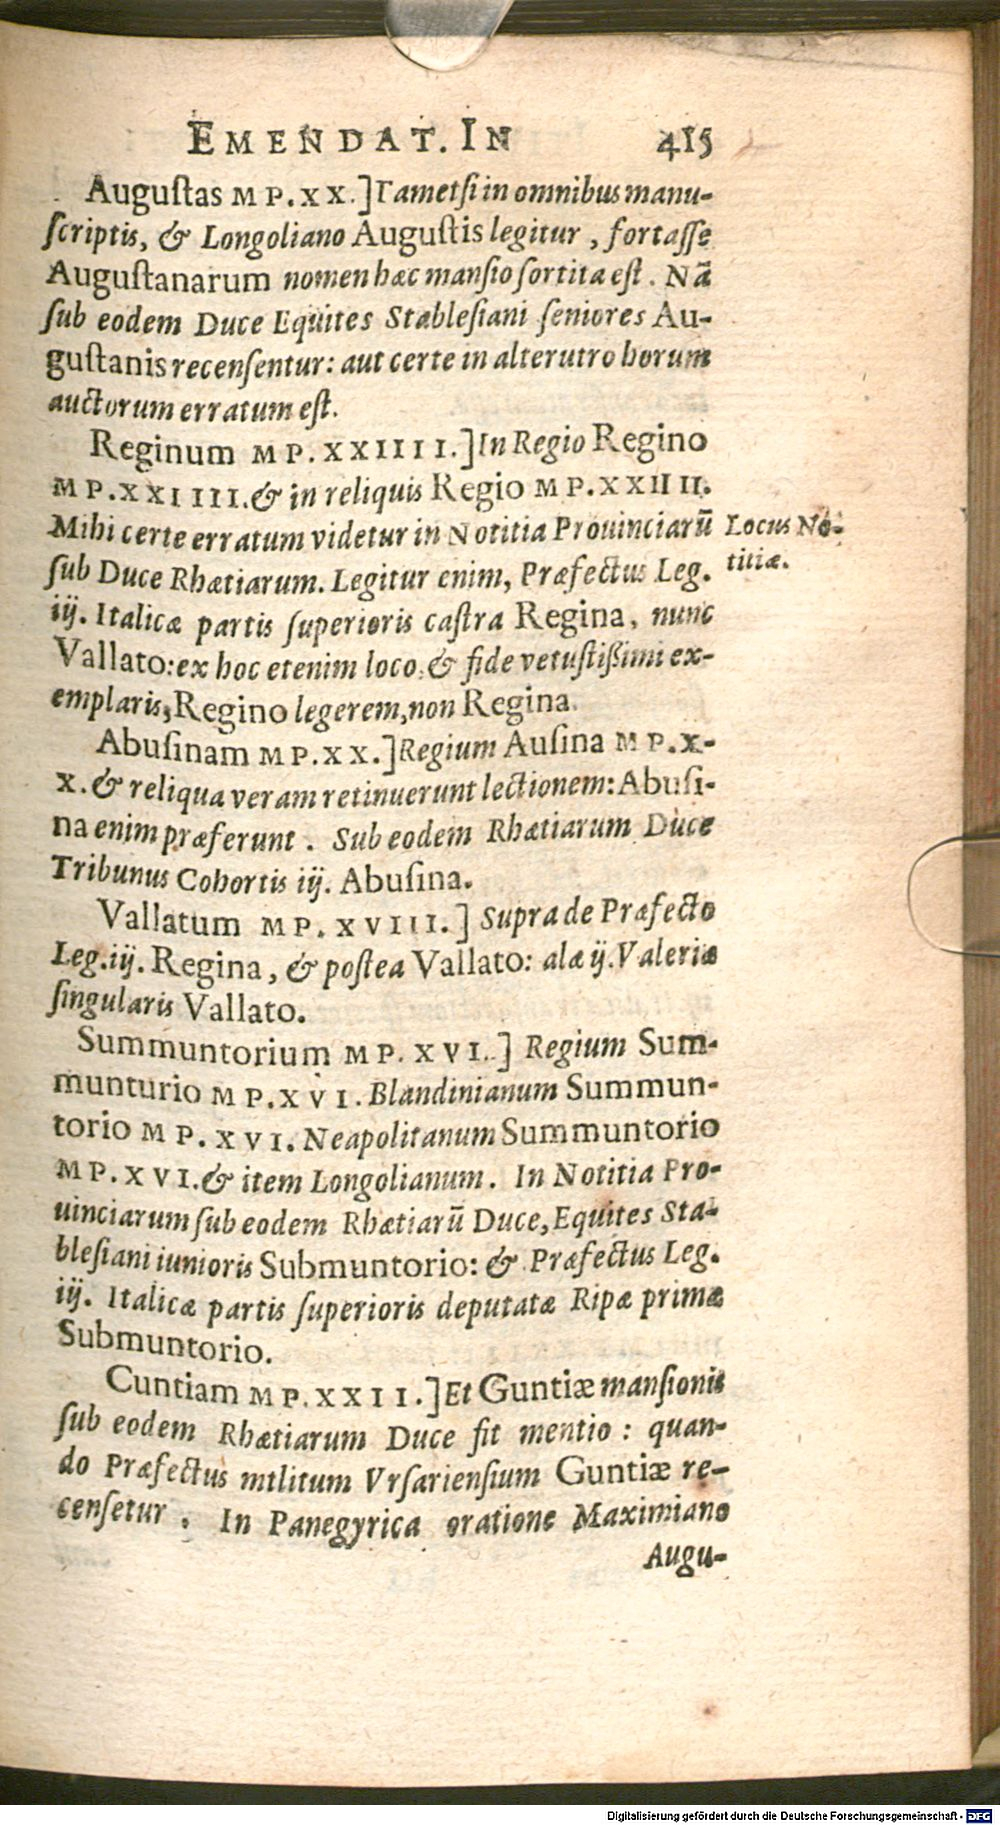 EMENDAT. IN 415
Augustas MP. XX.] Tametsi in omnibus manu-
scriptis, & Longoliano Augustis legitur, fortasse
Augustanarum nomen hæc mansio sortita est. Nā
sub eodem Duce Equites Stablesiani seniores Au-
gustanis recensentur: aut certe in alterutro horum
auctorum erratum est.
Reginum MP. XXIIII.] In Regio Regino
MP. XXIIII. & in reliquis Regio MP. XXIIII.
Mihi certe erratum videtur in Notitia Prouinciarū
Locus No-
sub Duce Rhætiarum. Legitur enim, Præfectus Leg.
titiæ.
iij. Italicæ partis superioris castra Regina, nunc
Vallato: ex hoc etenim loco, & fide vetustißimi ex-
emplaris, Regino legerem, non Regina.
Abusinam MP. XX.] Regium Ausina MP. X-
X. & reliqua veram retinuerunt lectionem: Abusi-
na enim præferunt. Sub eodem Rhætiarum Duce
Tribunus Cohortis iij. Abusina.
Vallatum MP. XVIII.] Supra de Præfecto
Leg. iij. Regina, & postea Vallato: alæ ij. Valeriæ
singularis Vallato.
Summuntorium MP. XVI.] Regium Sum-
munturio MP. XVI. Blandinianum Summun-
torio MP. XVI. Neapolitanum Summuntorio
MP. XVI. & item Longolianum. In Notitia Pro-
uinciarum sub eodem Rhætiarū Duce, Equites Sta-
blesiani iunioris Submuntorio: & Præfectus Leg.
iij. Italicæ partis superioris deputatæ Ripæ primæ
Submuntorio.
Cuntiam MP. XXII.] Et Guntiæ mansionis
sub eodem Rhætiarum Duce fit mentio: quan-
do Præfectus militum Vrsariensium Guntiæ re-
censetur. In Panegyrica oratione Maximiano
Augu-
Digitalisierung gefördert durch die Deutsche Forschungsgemeinschaft - DFG